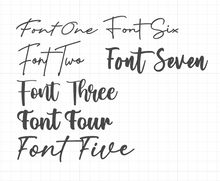 Font One Font Six
Font Two Font Seven
Font Three
Font Four
Font Five